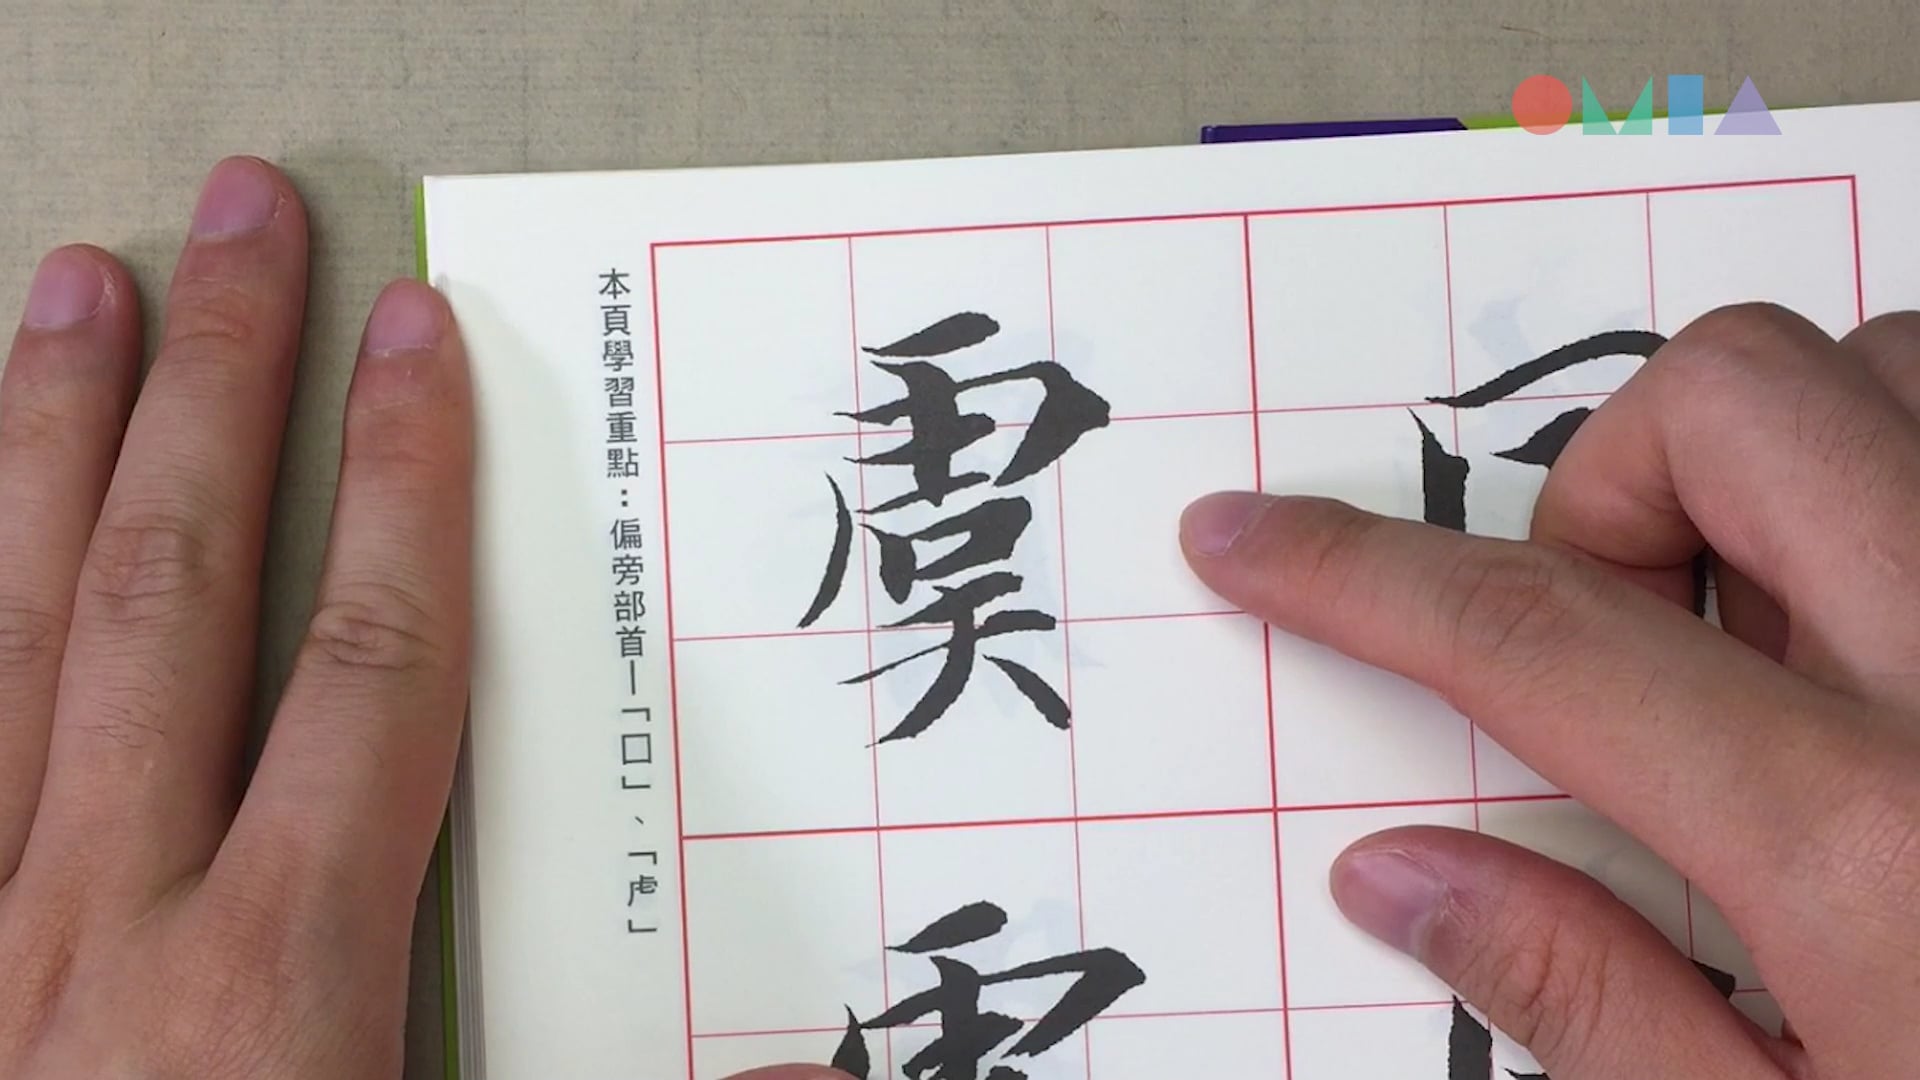 OMIA
虞
本頁學習重點：偏旁部首—「囗」、「虍」